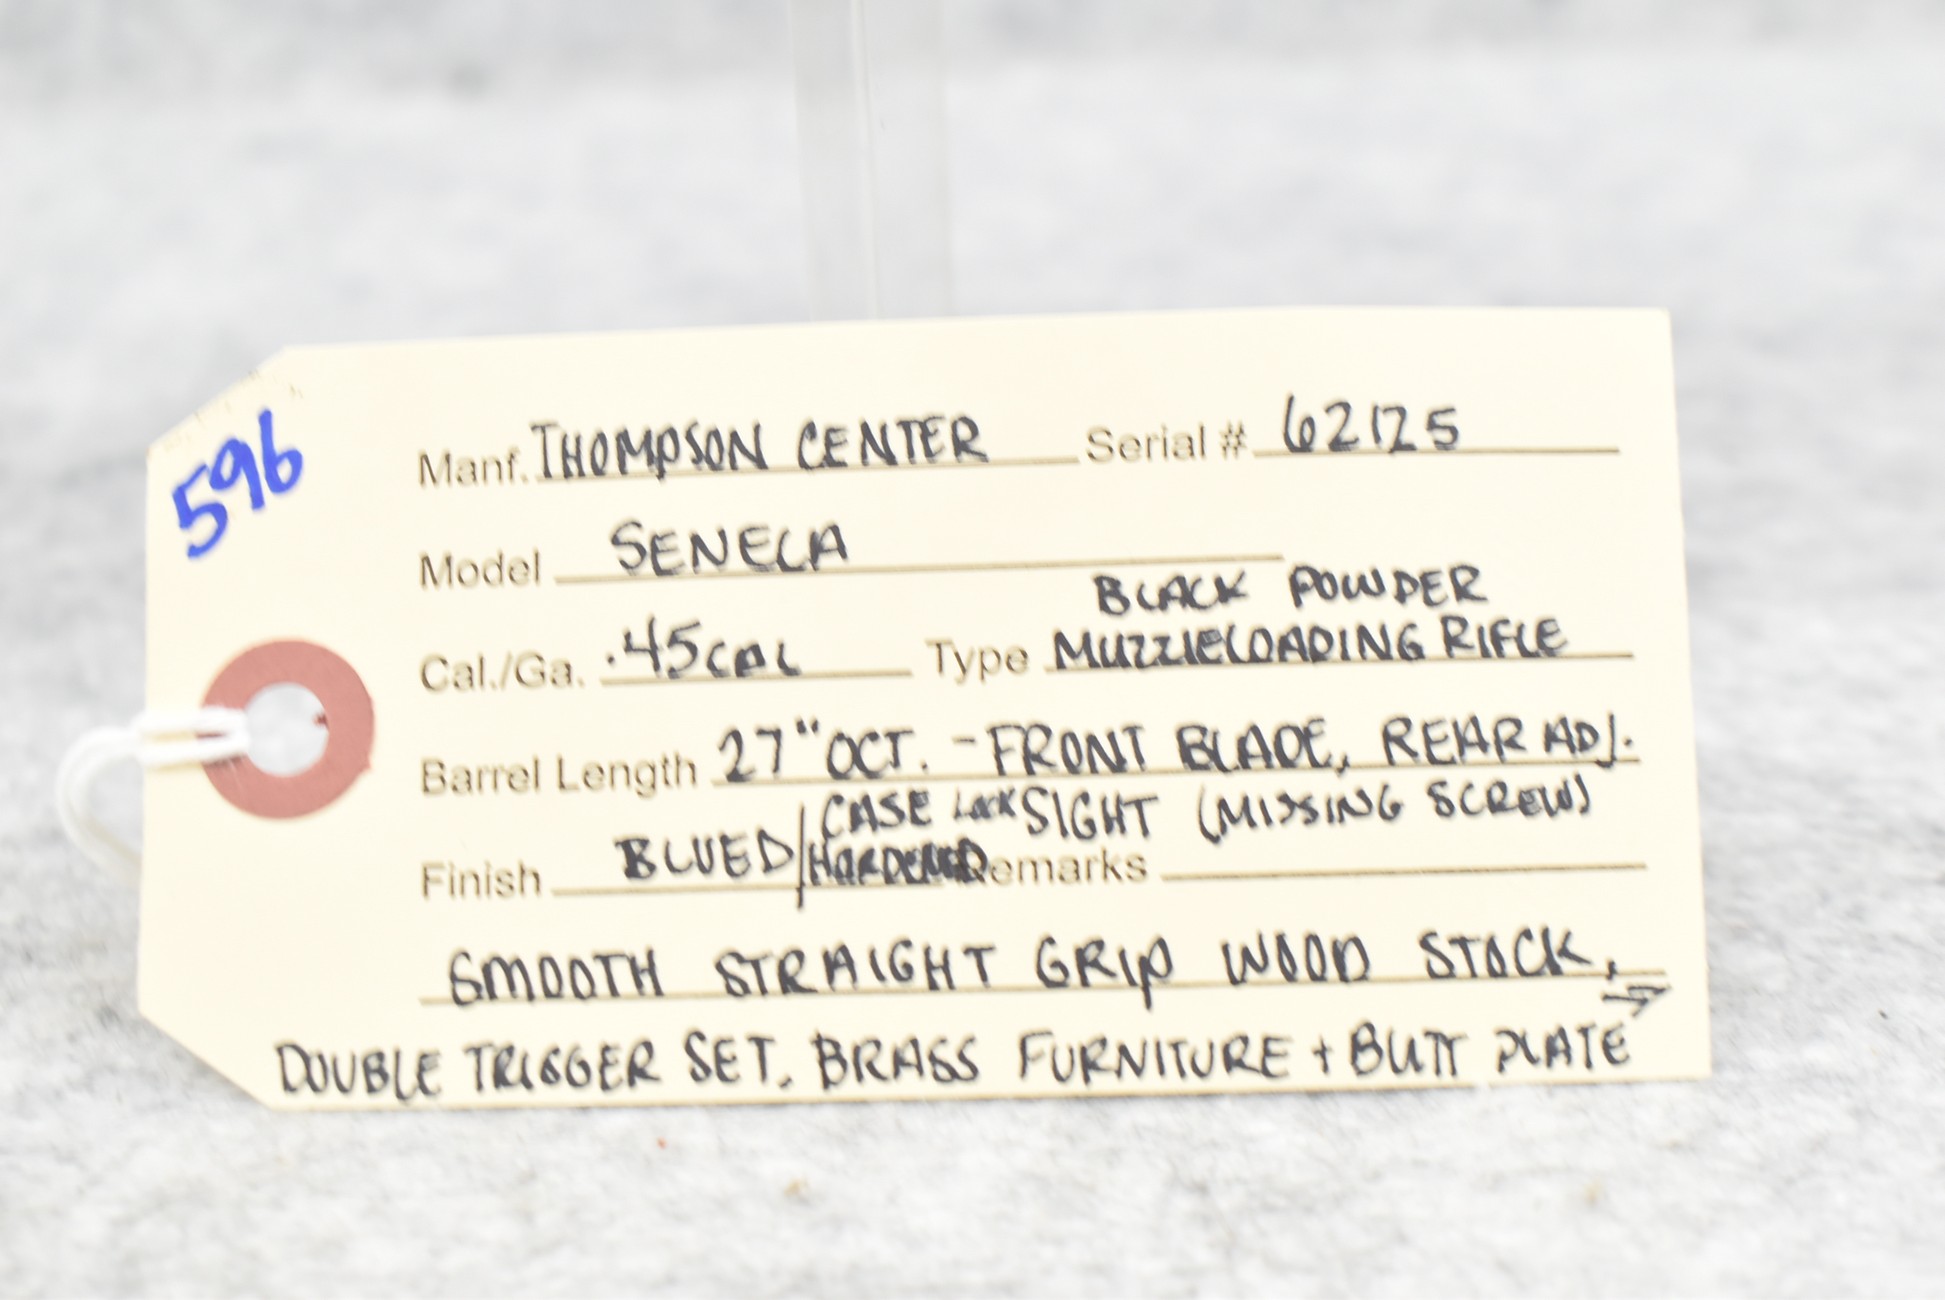 596
Manf. THOMPSON CENTER Serial # 62125
Model SENECA
BLACK POWDER
Cal./Ga. .45CAL Type MUZZLELOADING RIFLE
Barrel Length 27" OCT. - FRONT BLADE, REAR ADJ.
CASE LOCK SIGHT (MISSING SCREW)
Finish BLUED/HARDENED Remarks
SMOOTH STRAIGHT GRIP WOOD STOCK,
DOUBLE TRIGGER SET. BRASS FURNITURE + BUTT PLATE